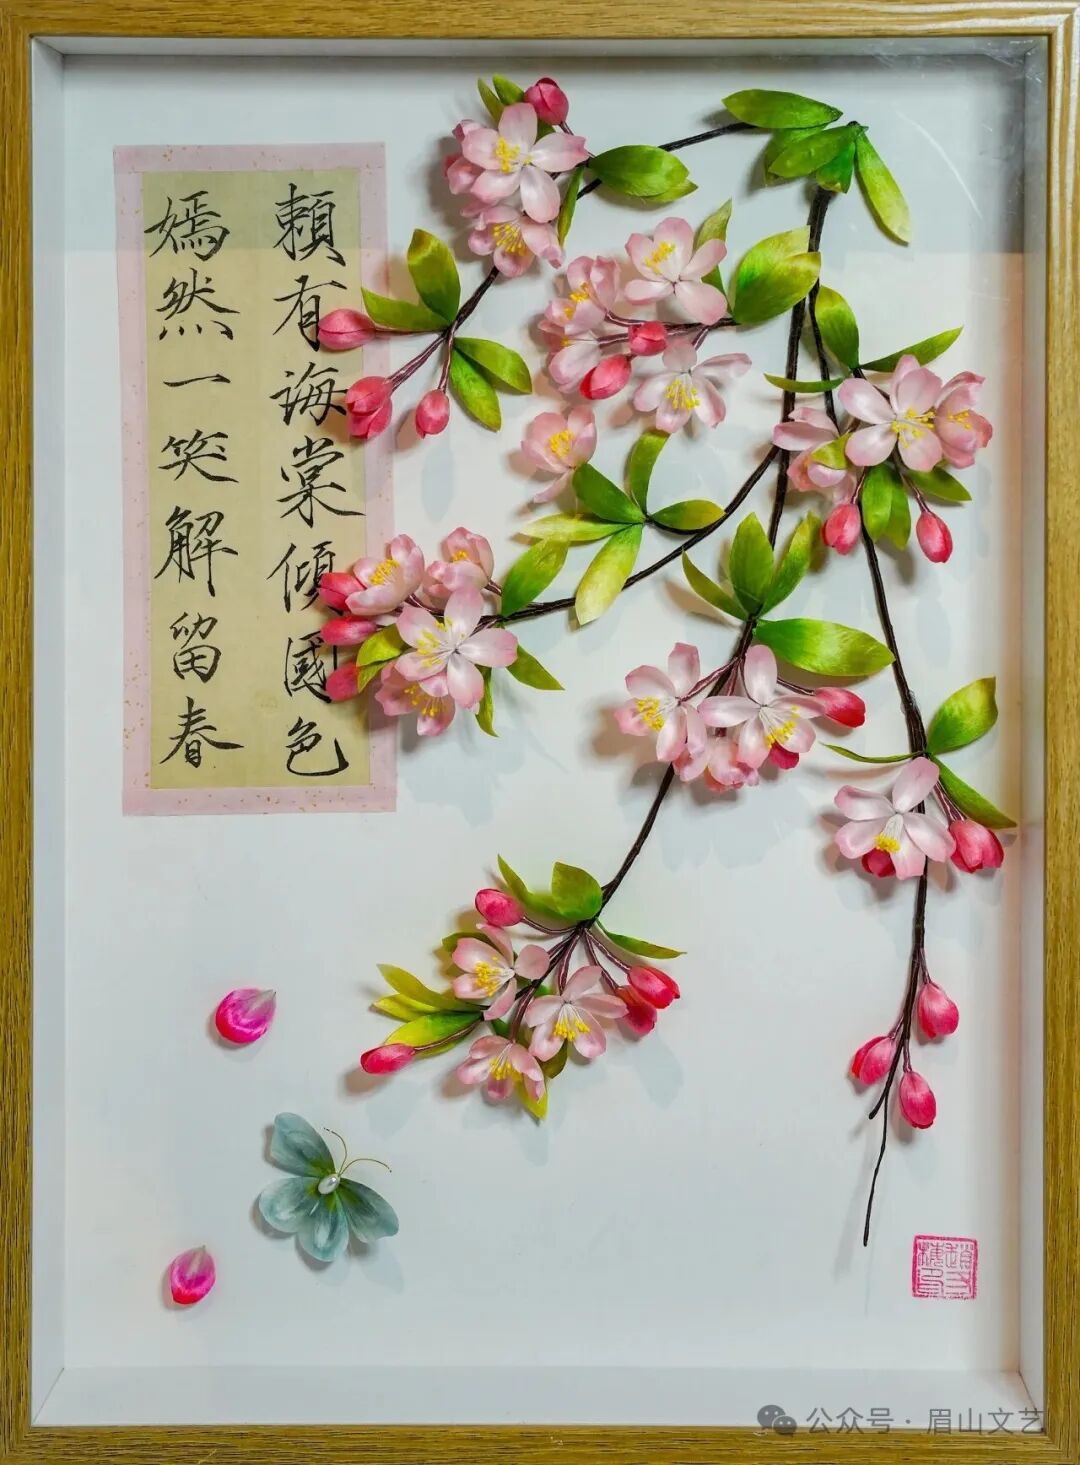 賴有海棠傾國色
嫣然一笑解留春
公众号·眉山文艺